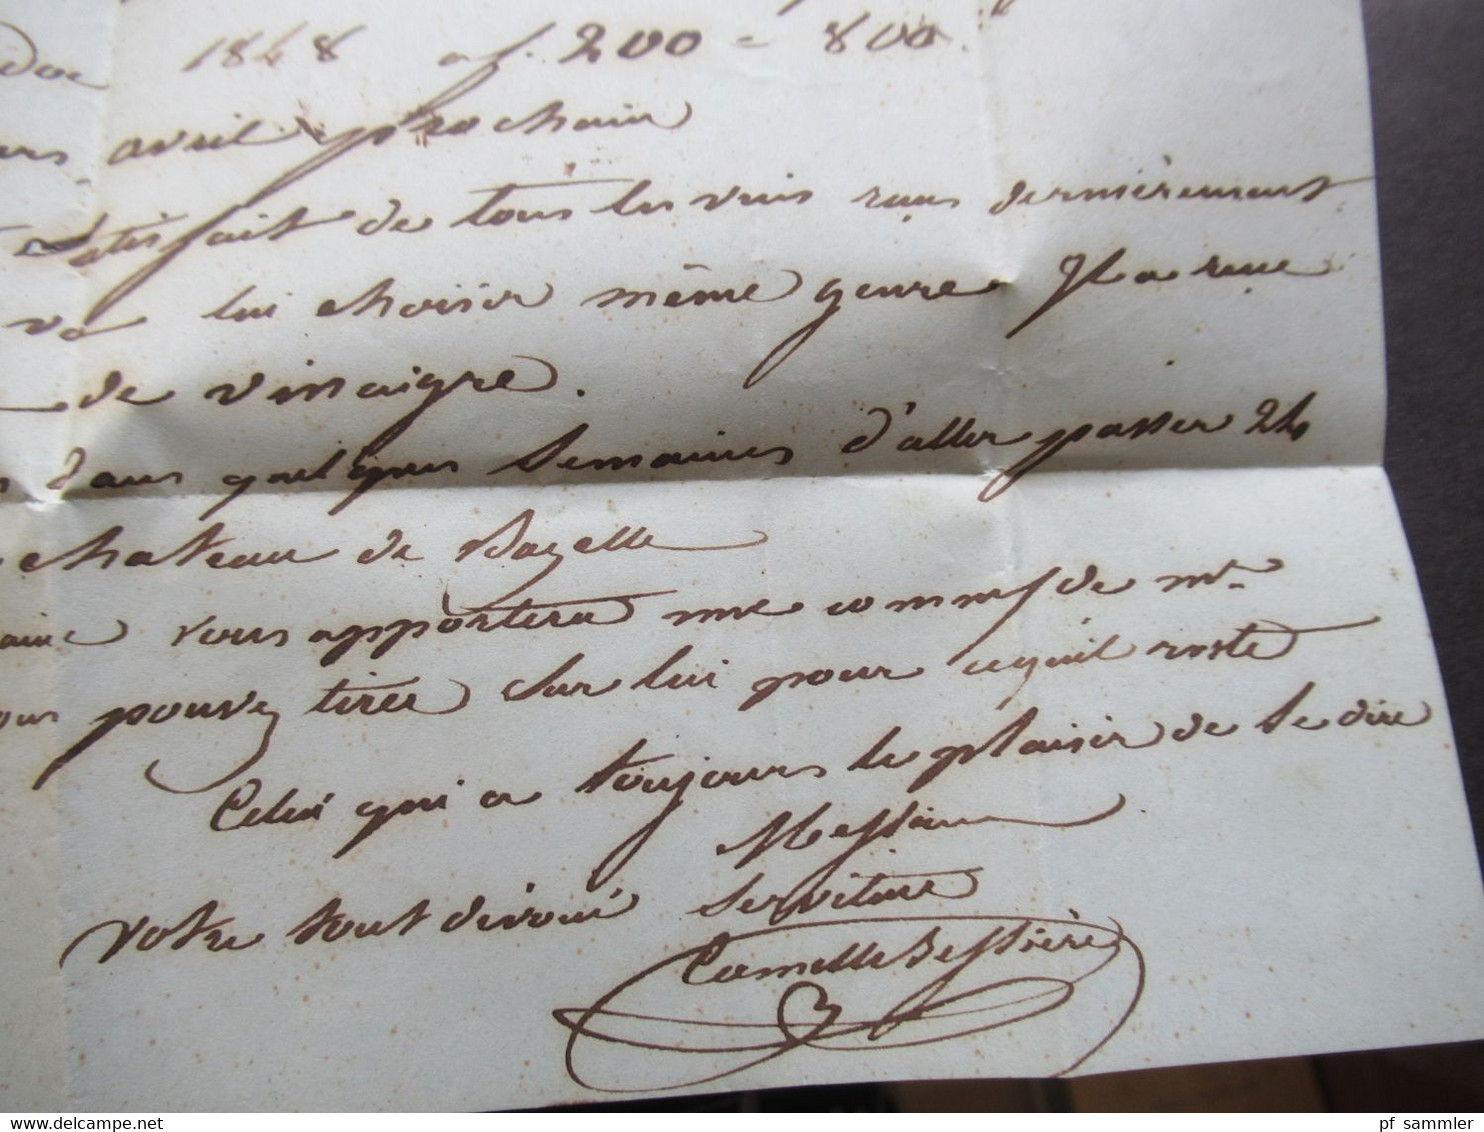 1848 a f. 200 = 800.
avril prochain
satisfait de tous les vins reçus dernièrement
va lui choisir même genre
de vinaigre.
dans quelques semaines d'aller passer 24
chateau de Bazelle
vous apportera une comm de Mr
pouvez tirer sur lui pour ce qu'il reste
Celui qui a toujours le plaisir de se dire
Messieurs
votre tout dévoué serviteur
Camille Bessière
pf_sammler